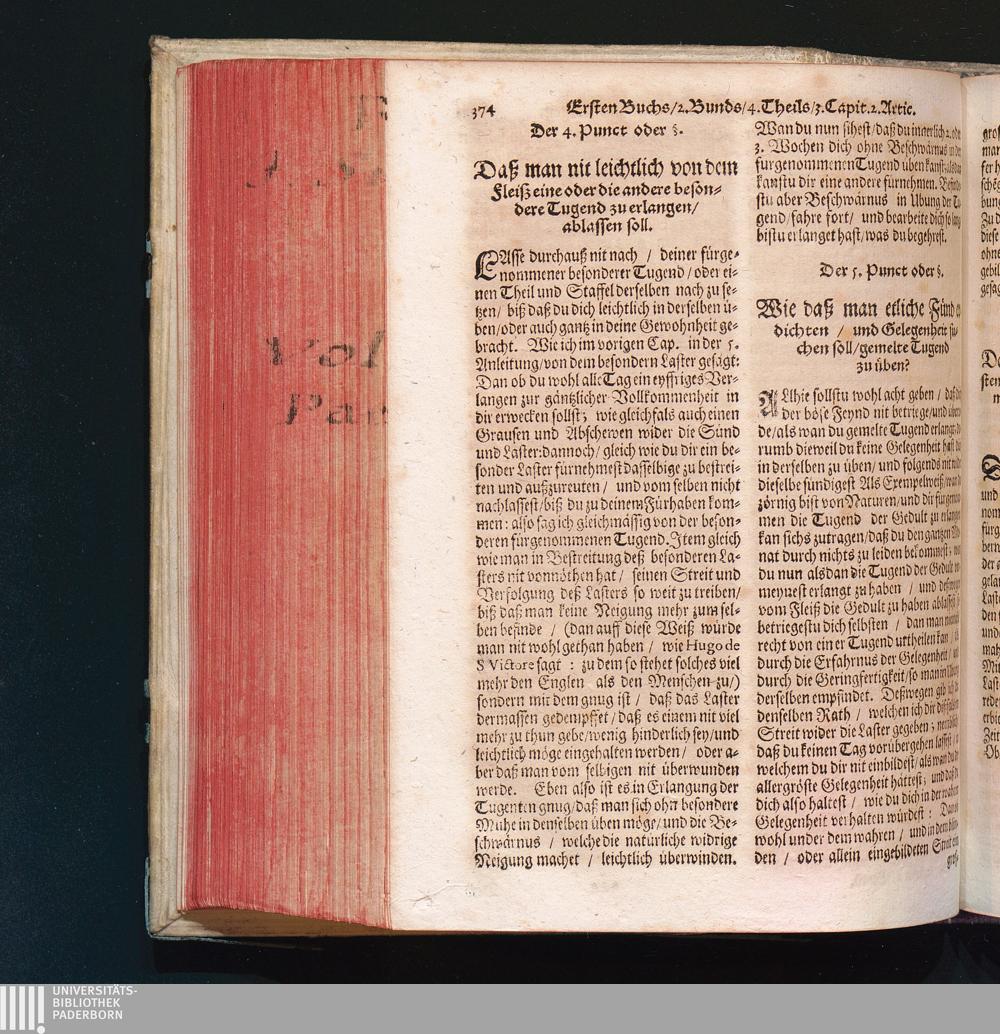 374
Ersten Buchs/2. Bunds/4. Theils/3. Capit. 2. Artic.
Der 4. Punct oder §.
Daß man nit leichtlich von dem
Fleiß eine oder die andere beson-
dere Tugend zu erlangen/
ablassen soll.
LAsse durchauß nit nach / deiner fürge-
nommener besonderer Tugend / oder ei-
nen Theil und Staffel derselben nach zu se-
tzen/ biß daß du dich leichtlich in derselben ü-
ben/oder auch gantz in deine Gewohnheit ge-
bracht. Wie ich im vorigen Cap. in der 5.
Anleitung/von dem besondern Laster gesagt:
Dan ob du wohl alle Tag ein eyffriges Ver-
langen zur gäntzlicher Vollkommenheit in
dir erwecken sollst; wie gleichfals auch einen
Grausen und Abschewen wider die Sünd
und Laster: dannoch/ gleich wie du dir ein be-
sonder Laster fürnehmest dasselbige zu bestrei-
ten und außzureuten / und vom selben nicht
nachlassest/biß du zu deinem Fürhaben kom-
men: also sag ich gleichmässig von der beson-
deren fürgenommenen Tugend. Item gleich
wie man in Bestreitung deß besonderen La-
sters nit vonnöthen hat / seinen Streit und
Verfolgung deß Lasters so weit zu treiben/
biß daß man keine Neigung mehr zum sel-
ben befinde / (dan auff diese Weiß würde
man nit wohl gethan haben / wie Hugo de
S Victore sagt : zu dem so stehet solches viel
mehr den Englen als den Menschen zu/)
sondern mit dem gnug ist / daß das Laster
dermassen gedempffet / daß es einem nit viel
mehr zu thun gebe/wenig hinderlich sey/und
leichtlich möge eingehalten werden / oder a-
ber daß man vom selbigen nit überwunden
werde. Eben also ist es in Erlangung der
Tugenten gnug/daß man sich ohn besondere
Mühe in denselben üben möge/und die Be-
schwärnus / welche die natürliche widrige
Neigung machet / leichtlich überwinden.
Wan du nun sihest/daß du innerlich 2. oder
3. Wochen dich ohne Beschwärnus in der
fürgenommenen Tugend üben kanst; alsdan
kanstu dir eine andere fürnehmen. Befind-
stu aber Beschwärnus in Ubung der Tu-
gend/fahre fort/ und bearbeite dich so lang
bistu erlanget hast/was du begehrest.
Der 5. Punct oder §.
Wie daß man etliche Fünd er
dichten / und Gelegenheit su-
chen soll/gemelte Tugend
zu üben?
ALlhie sollstu wohl acht geben / daß dich
der böse Feynd nit betriege/und
de/als wan du gemelte Tugend erlangt
rumb dieweil du keine Gelegenheit hast dich
in derselben zu üben/ und folgends nit wider
dieselbe sündigest Als Exempelweiß/wan du
zörnig bist von Naturen/und dir fürgenom
men die Tugend der Gedult zu erlangen
kan sichs zutragen/daß du den gantzen Mo-
nat durch nichts zu leiden bekommest;
du nun alsdan die Tugend der Gedult
meynest erlangt zu haben / und deßwegen
vom Fleiß die Gedult zu haben ablassest
betriegestu dich selbsten / dan man niemal
recht von einer Tugend urtheilen kan /
durch die Erfahrnus der Gelegenheit /
durch die Geringfertigkeit/so man in
derselben empfindet. Deßwegen gib ich
denselben Rath / welchen ich dir
Streit wider die Laster gegeben; nemblich
daß du keinen Tag vorübergehen lassest /
welchem du dir nit einbildest/als wan du die
allergröste Gelegenheit hättest; und daß du
dich also haltest / wie du dich in der wahren
Gelegenheit verhalten würdest : Dan
wohl under dem wahren / und in dem
den / oder allein eingebildeten Streit ein
groß-
Vol
UNIVERSITÄTS-
BIBLIOTHEK
PADERBORN